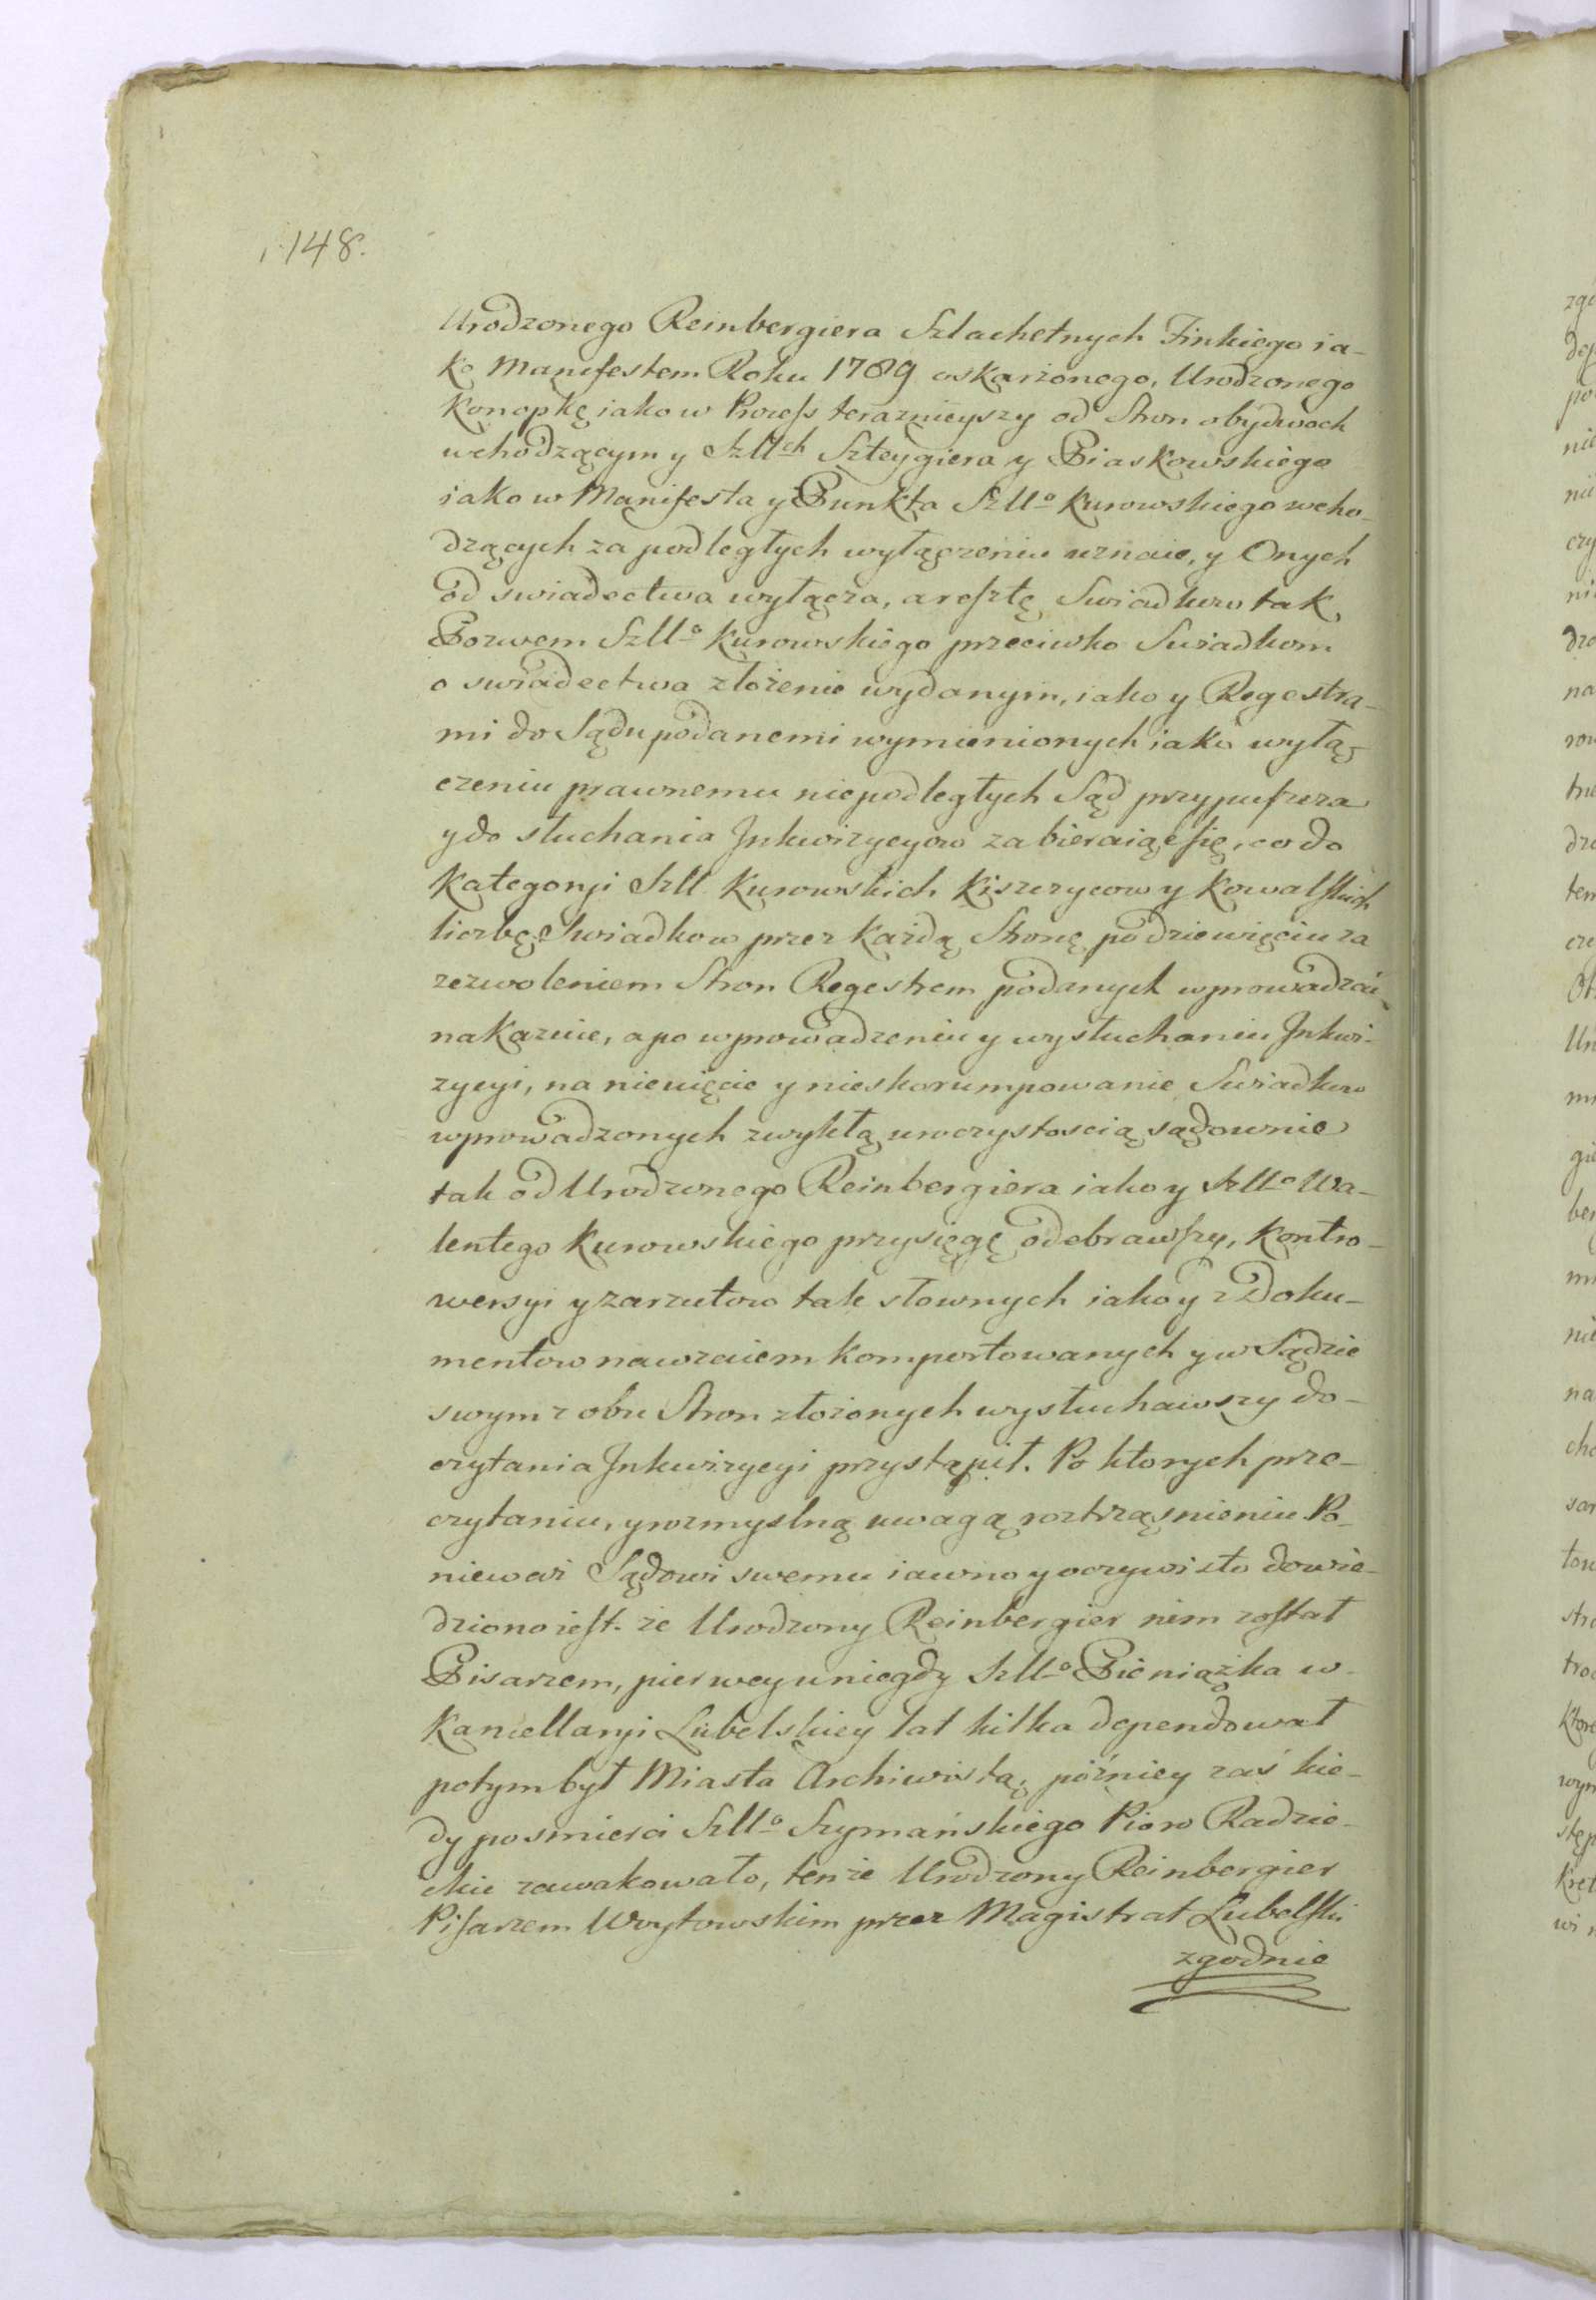 148.
Urodzonego Reinbergiera Szlachetnych Finkiego ia-
ko Manifestem Roku 1789 oskarżonego, Urodzonego
Konopkę iako w Process teraznieyszy od Stron obydwoch
wchodzącym y Szll<sup>ch</sup> Szteygiera y Piaskowskiego
iako w Manifesta y Punkta Szll<sup>o</sup> Kurowskiego wcho-
dzących za podległych wyłączeniu uznaie, y Onych
od swiadectwa wyłącza, a resztę Swiadkow tak
Pozwem Szll<sup>o</sup> Kurowskiego przeciwko Swiadkom
o swiadectwa złożenie wydanym, iako y Regestra-
mi do Sądu podanemi wymienionych iako wyłą-
czeniu prawnemu niepodległych Sąd przypuszcza
y do słuchania Inkwizycyow zabieraiąc się, co do
Kategoryi Szll Kurowskich Kiszczycow y Kowalskich
liczbę Swiadkow przez każdą Stronę po dziewięciu za
zezwoleniem Stron Regestrem podanych wprowadzić
nakazuie, a po wprowadzeniu y wysłuchaniu Inkwi-
zycyi, na nieuięcie y nieskorumpowanie Swiadkow
wprowadzonych zwykłą uroczystoscią sądownie
tak od Urodzonego Reinbergiera iako y Szll<sup>o</sup> Wa-
lentego Kurowskiego przysięgę odebrawszy, Kontro-
wersyi y zarzutow tak słownych iako y z Doku-
mentow nawzaiem komportowanych y w Sądzie
swym z obu Stron złożonych wysłuchawszy do-
czytania Inkwizycyi przystąpił. Po ktorych prze-
czytaniu, y rozmyslną uwagą roztrząsnieniu Po-
nieważ Sądowi swemu iawno y oczywisto dowie-
dziono iest. że Urodzony Reinbergier nim został
Pisarzem, pierwey u niegdy Szll<sup>o</sup> Pieniążka w
Kancellaryi Lubelskiey lat kilka dependował
potym był Miasta Archiwistą, pózniey zaś kie-
dy po smierci Szll<sup>o</sup> Szymańskiego Pioro Radzie-
ckie zawakowało, tenże Urodzony Reinbergier
Pisarzem Woytowskim przez Magistrat Lubelski
zgodnie